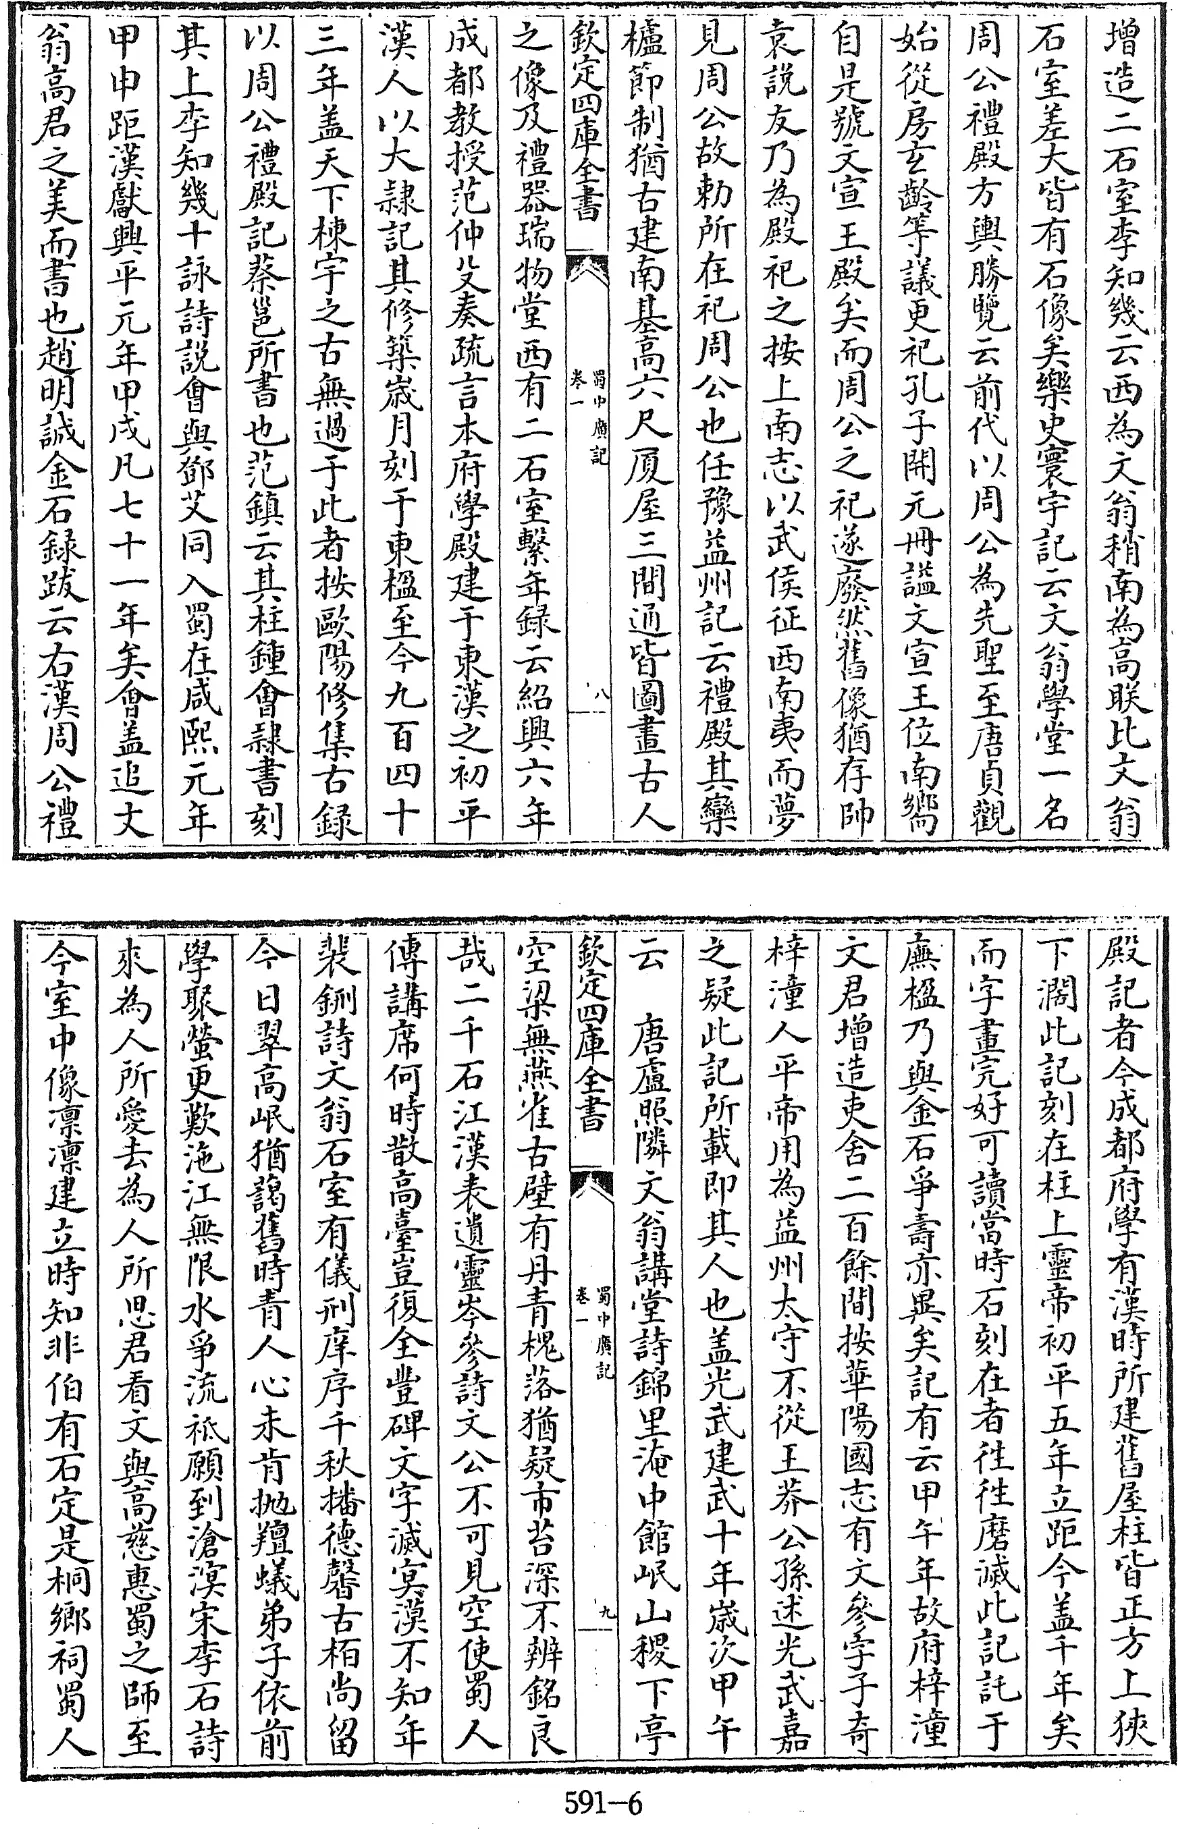 增造二石室李知幾云西為文翁稍南為高朕比文翁
石室差大皆有石像矣樂史寰宇記云文翁學堂一名
周公禮殿方輿勝覽云前代以周公為先聖至唐貞觀
始從房玄齡等議更祀孔子開元冊諡文宣王位南嚮
自是號文宣王殿矣而周公之祀遂廢然舊像猶存帥
袁說友乃為殿祀之按上南志以武侯征西南夷而夢
見周公故勅所在祀周公也任豫益州記云禮殿其欒
櫨節制猶古建南基高六尺厦屋三間通皆圖畫古人
欽定四庫全書
蜀中廣記
卷一
八
之像及禮器瑞物堂西有二石室繫年録云紹興六年
成都教授范仲殳奏疏言本府學殿建于東漢之初平
漢人以大隸記其修築歲月刻于東楹至今九百四十
三年蓋天下棟宇之古無過于此者按歐陽修集古録
以周公禮殿記蔡邕所書也范鎮云其柱鍾會隸書刻
其上李知幾十詠詩説會與鄧艾同入蜀在咸熙元年
甲申距漢獻興平元年甲戌凡七十一年矣會盖追文
翁高君之美而書也趙明誠金石録跋云右漢周公禮
殿記者今成都府學有漢時所建舊屋柱皆正方上狹
下濶此記刻在柱上靈帝初平五年立距今盖千年矣
而字畫完好可讀當時石刻在者往往磨滅此記託于
廡楹乃與金石爭壽亦異矣記有云甲午年故府梓潼
文君增造吏舍二百餘間按華陽國志有文參字子奇
梓潼人平帝用為益州太守不從王莽公孫述光武嘉
之疑此記所載即其人也盖光武建武十年歲次甲午
云　唐盧照隣文翁講堂詩錦里淹中館岷山稷下亭
欽定四庫全書
蜀中廣記
卷一
九
空梁無燕雀古壁有丹青槐落猶疑市苔深不辨銘良
哉二千石江漢表遺靈岑參詩文公不可見空使蜀人
傳講席何時散高臺豈復全豐碑文字滅㝠漠不知年
裴鉶詩文翁石室有儀刑庠序千秋播德馨古栢尚留
今日翠高岷猶藹舊時青人心未肯抛羶蟻弟子依前
學聚螢更歎沲江無限水爭流祇願到滄溟宋李石詩
來為人所愛去為人所思君看文與高慈惠蜀之師至
今室中像凛凛建立時知非伯有石定是桐鄉祠蜀人
591-6